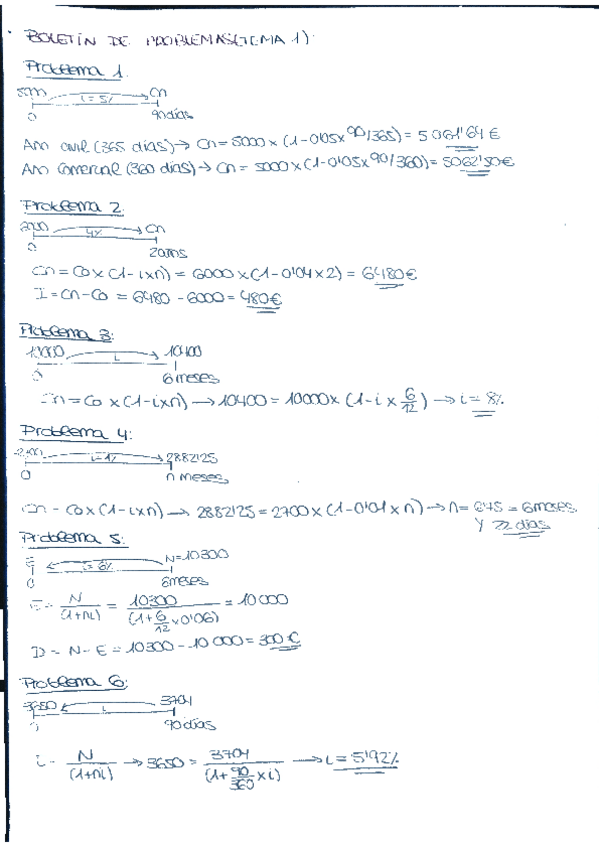 BOLETÍN DE PROBLEMAS (TEMA 1):
Problema 1.
5000 i=5% Cn
0 90 días
Año civil (365 días) → Cn = 5000 x (1-0'05x 90/365) = 5061'64 €
Año comercial (360 días) → Cn = 5000 x (1-0'05x 90/360) = 5062'50 €
Problema 2.
4% Cn
0 2 años
Cn = Co x (1-ixn) = 6000 x (1-0'04 x 2) = 6480 €
I = Cn - Co = 6480 - 6000 = 480 €
Problema 3:
10400
0 6 meses
Cn = Co x (1-ixn) → 10400 = 10000 x (1-i x 6/12) → i = 8%
Problema 4:
i=1% 2882'25
0 n meses
Cn - Co x (1-ixn) → 2882'25 = 2700 x (1-0'01 x n) → n = 6'75 = 6 meses
y 22 días
Problema 5:
E i=6% N=10300
0 6 meses
E = N/(1+ni) = 10300/(1+6/12 x 0'06) = 10000
D = N - E = 10300 - 10000 = 300 €
Problema 6:
3650 i 3704
90 días
N/(1+ni) → 3650 = 3704/(1+90/360 x i) → i = 5'92%